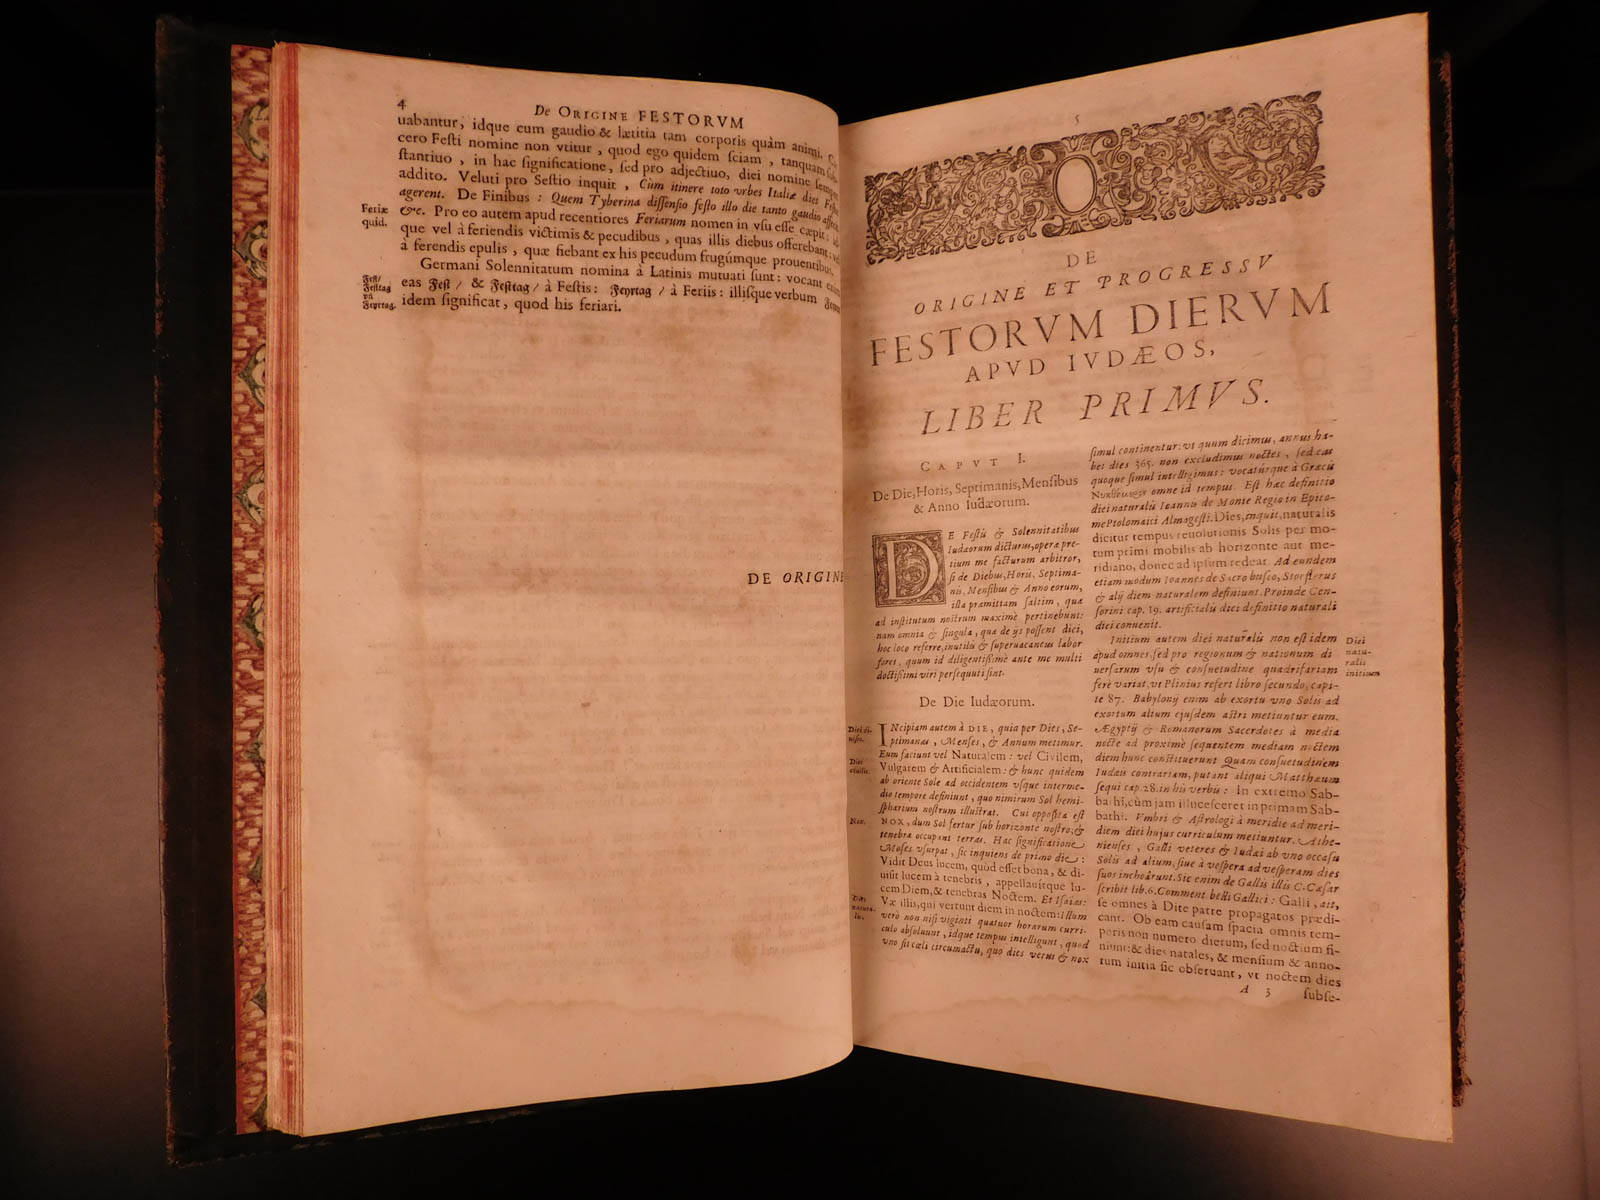 4
De ORIGINE FESTORVM
uabantur; idque cum gaudio & lætitia tam corporis quàm animi.
cero Festi nomine non vtitur, quod ego quidem sciam, tanquam
stantiuo, in hac significatione, sed pro adjectiuo, diei nomine semper
addito. Veluti pro Sestio inquit, Cùm itinere toto vrbes Italiæ dies
agerent. De Finibus: Quem Tyberina dissensio festo illo die tanto gaudio
Feriæ
quid.
&c. Pro eo autem apud recentiores Feriarum nomen in vsu esse cæpit:
que vel à feriendis victimis & pecudibus, quas illis diebus offerebant:
à ferendis epulis, quæ fiebant ex his pecudum frugúmque prouentibus.
Germani Solennitatum nomina à Latinis mutuati sunt: vocant enim
Fest/
Festtag
vñ
Feyrtag.
eas Fest / & Festtag / à Festis: Feyrtag / à Feriis: illisque verbum
idem significat, quod his feriari.
DE ORIGINE
5
DE
ORIGINE ET PROGRESSV
FESTORVM DIERVM
APVD IVDÆOS,
LIBER PRIMVS.
CAPVT I.
De Die, Horis, Septimanis, Mensibus
& Anno Iudæorum.
DE Festis & Solennitatibus
Iudæorum dicturus, operæ pre-
tium me facturum arbitror,
si de Diebus, Horis, Septima-
nis, Mensibus & Anno eorum,
illa præmittam saltim, quæ
ad institutum nostrum maximè pertinebunt:
nam omnia & singula, quæ de ijs possent dici,
hoc loco referre, inutilis & superuacaneus labor
foret, quum id diligentissimè ante me multi
doctissimi viri persequuti sint.
De Die Iudæorum.
Diei di-
INcipiam autem à DIE, quia per Dies, Se-
ptimanas, Menses, & Annum metimur.
Eum faciunt vel Naturalem: vel Civilem,
Dies
ciuilis.
Vulgarem & Artificialem: & hunc quidem
ab oriente Sole ad occidentem vsque interme-
dio tempore definiunt, quo nimirum Sol hemi-
sphærium nostrum illustrat. Cui opposita est
Nox.
NOX, dum Sol fertur sub horizonte nostro, &
tenebræ occupant terras. Hac significatione
Moses vsurpat, sic inquiens de primo die:
Vidit Deus lucem, quod esset bona, & di-
uisit lucem à tenebris, appellauitque lu-
cem Diem, & tenebras Noctem. Et Isaias:
Dies
natura-
lis.
Væ illis, qui vertunt diem in noctem: Illum
verò non nisi viginti quatuor horarum curri-
culo absoluunt, idque tempus intelligunt, quod
vno sit cæli circumactu, quo dies versus & nox
simul continentur: vt quum dicimus, annus ha-
bet dies 365. non excludimus noctes, sed eas
quoque simul intelligimus: vocatúrque à Græcis
omne id tempus. Est hæc definitio
diei naturalis Ioannis de Monte Regio in Epito-
me Ptolomaici Almagesti. Dies, inquit, naturalis
dicitur tempus reuolutionis Solis per mo-
tum primi mobilis ab horizonte aut me-
ridiano, donec ad ipsum redeat. Ad eundem
etiam modum Ioannes de Sacro busco, Stoflerus
& alij diem naturalem definiunt. Proinde Cen-
sorini cap. 19. artificialis diei definitio naturali
diei conuenit.
Initium autem diei naturalis non est idem
Diei
natu-
ralis
initium
apud omnes, sed pro regionum & nationum di
uersarum vsu & consuetudine quadrifariam
ferè variat, vt Plinius refert libro secundo, capi-
te 87. Babylonij enim ab exortu vno Solis ad
exortum alium ejusdem astri metiuntur eum.
Ægyptij & Romanorum Sacerdotes à media
nocte ad proximè sequentem mediam noctem
diem hunc constituerunt Quam consuetudinem
Iudæis contrariam, putant aliqui Matthæum
sequi cap. 28. in his verbis: In extremo Sab-
bathi, cùm jam illucesceret in primam Sab-
bathi. Vmbri & Astrologi à meridie ad meri-
diem diei hujus curriculum metiuntur. Athe-
nienses, Galli veteres & Iudæi ab vno occasu
Solis ad alium, siue à vespera ad vesperam dies
suos inchoârunt. Sic enim de Gallis illis C. Cæsar
scribit lib. 6. Comment belli Gallici: Galli, ait,
se omnes à Dite patre propagatos prædi-
cant. Ob eam causam spacia omnis tem-
poris non numero dierum, sed noctium fi-
niunt: & dies natales, & mensium & anno-
rum initia sic obseruant, vt noctem dies
A 3
subse-